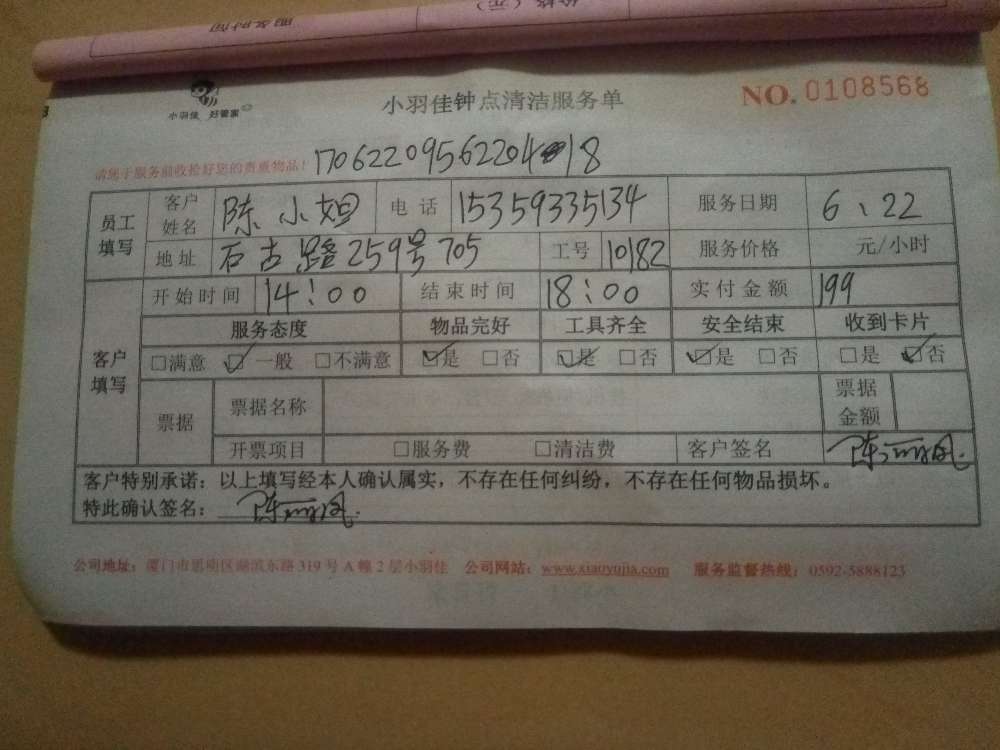 服务时间 价格（元）
小羽佳 好管家 小羽佳钟点清洁服务单 NO. 0108568
请您于服务前收捡好您的贵重物品！ 17062209562204 18
员工填写 客户姓名 陈小姐 电话 15359335134 服务日期 6、22
地址 石古路259号705 工号 10182 服务价格 元/小时
客户填写 开始时间 14:00 结束时间 18:00 实付金额 199
服务态度 物品完好 工具齐全 安全结束 收到卡片
□满意 ☑一般 □不满意 ☑是 □否 ☑是 □否 ☑是 □否 □是 ☑否
票据 票据名称 票据金额
开票项目 □服务费 □清洁费 客户签名 陈丽凤
客户特别承诺：以上填写经本人确认属实，不存在任何纠纷，不存在任何物品损坏。
特此确认签名：陈丽凤
公司地址：厦门市思明区湖滨东路319号A幢2层小羽佳 公司网站：www.xiaoyujia.com 服务监督热线：0592-5888123